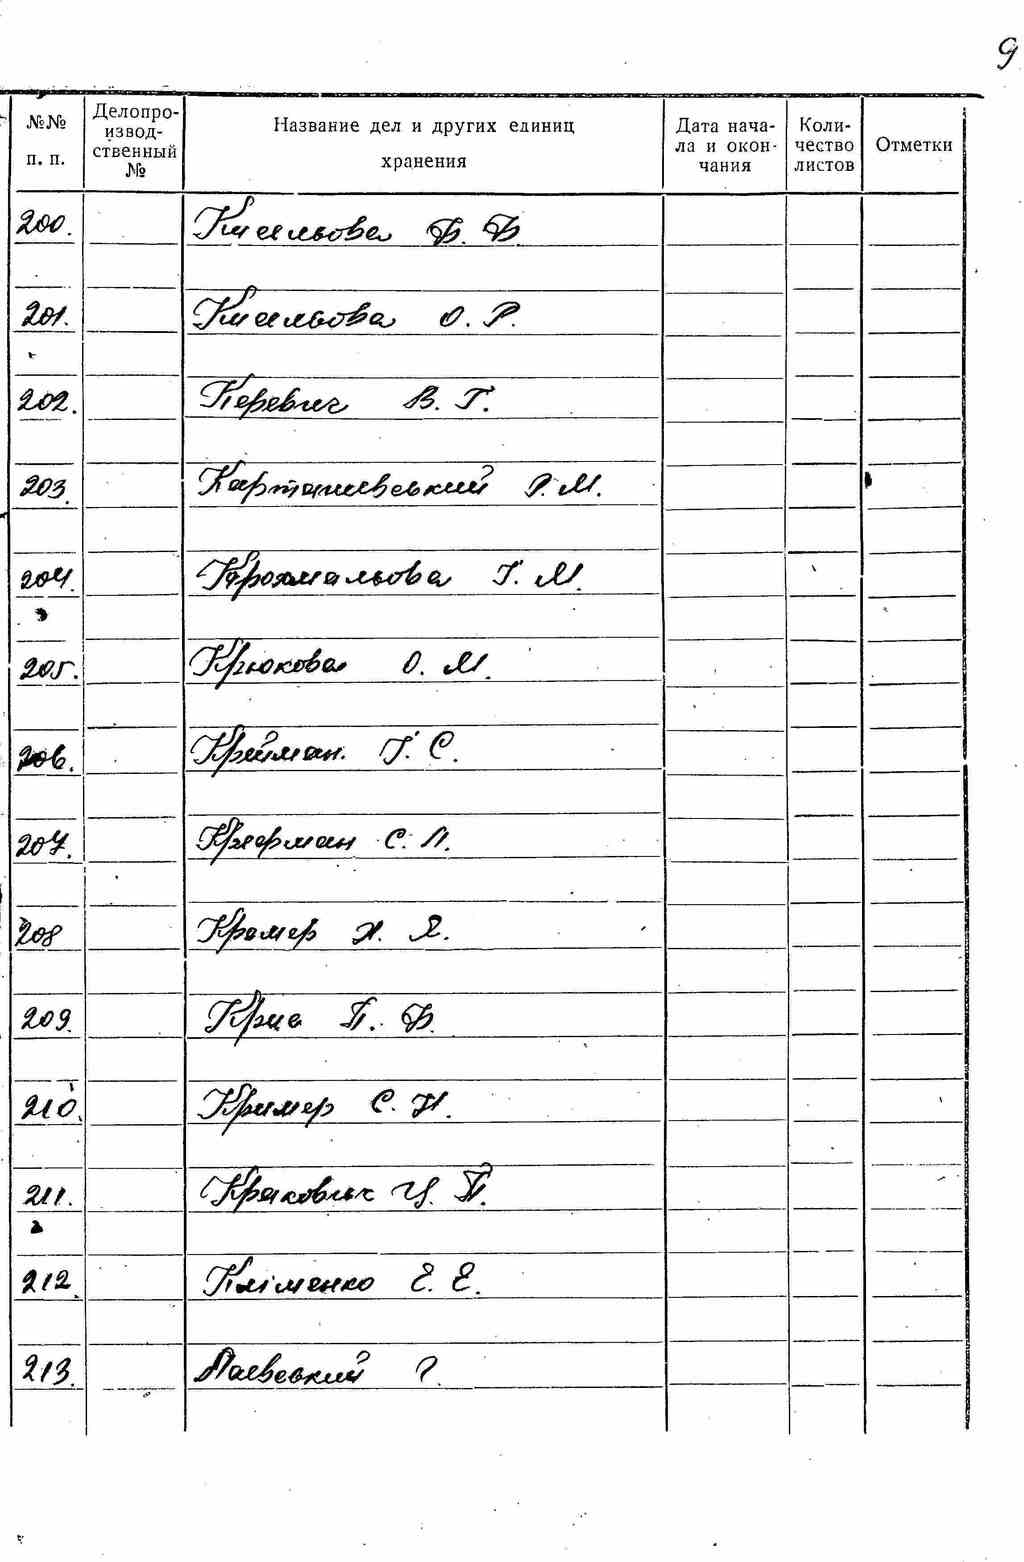 9
№№ п. п. Делопроизвод-ственный № Название дел и других единиц хранения Дата нача-ла и окон-чания Коли-чество листов Отметки
200. Кисельова Ф. Ф.
201. Кисельова О. Р.
202. Керевич В. Г.
203. Карташевський Р. М.
204. Крохмальова Г. М.
205. Крюкова О. М.
206. Крейман Г. С.
207. С. Л.
208 Кремер Я.
209. П. Ф.
210. Кример С. Н.
211. Кракович Ц. П.
212. Кліменко Е. Е.
213. Лаєвський